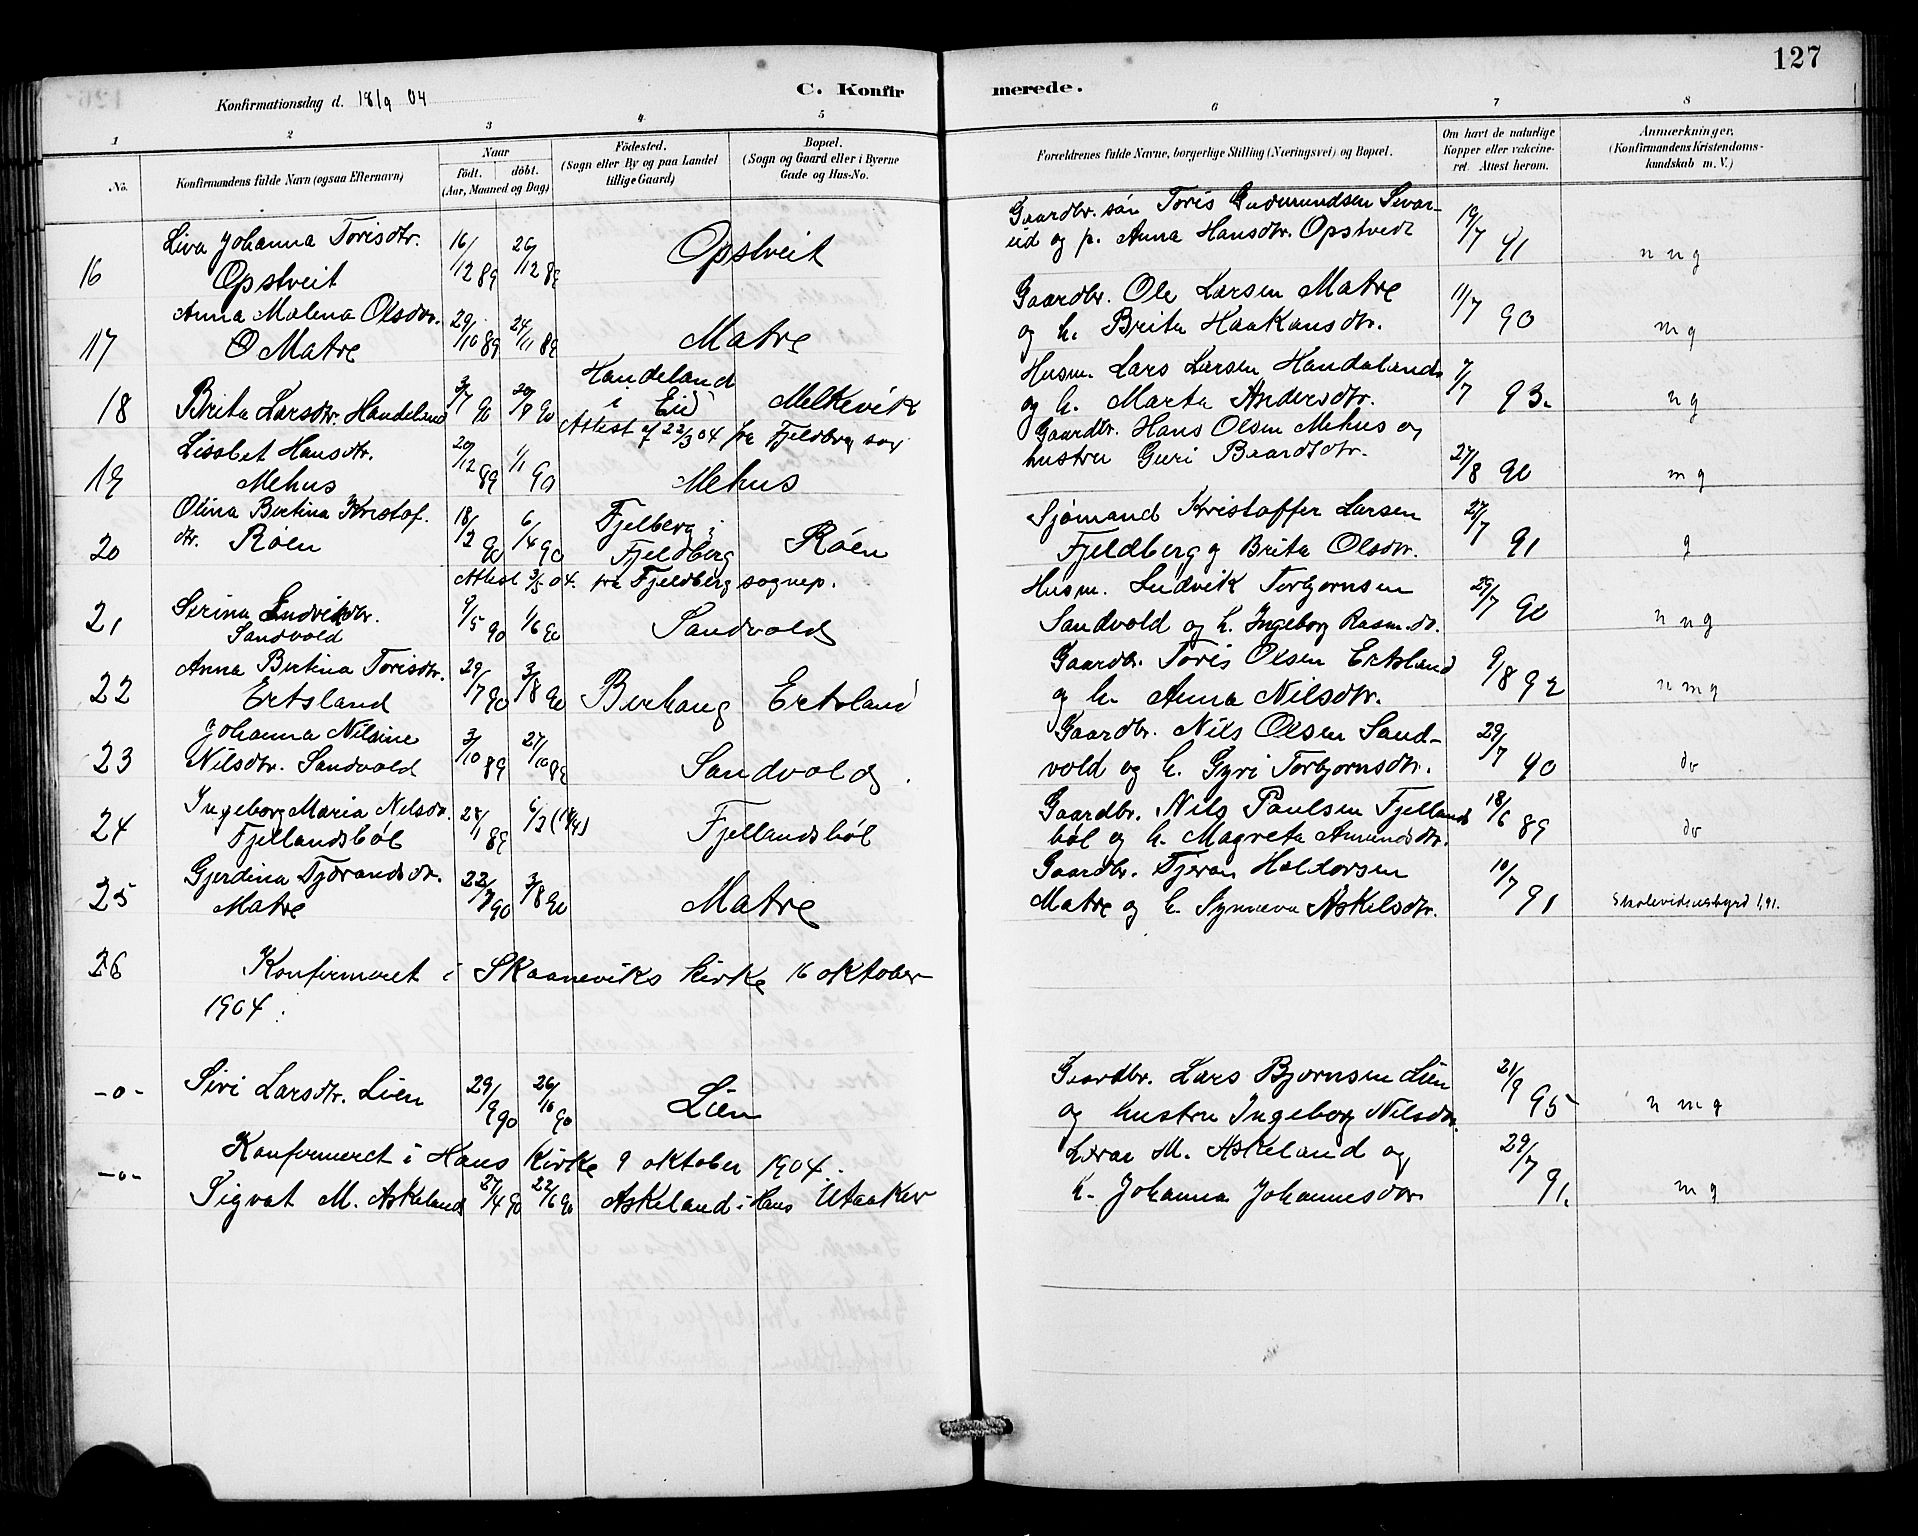 127
Konfirmationsdag d. 18/9 04 C. Konfirmerede.
1 2 3 4 5 6 7 8
No. Konfirmandens fulde Navn (ogsaa Efternavn)
Naar født. døbt. (Aar, Maaned og Dag)
Födested. (Sogn eller By og paa Landet tillige Gaard)
Bopæl. (Sogn og Gaard eller i Byerne Gade og Hus-No.
Forældrenes fulde Navne, borgerlige Stilling (Næringsvei) og Bopæl.
Om havt de naturlige Kopper eller vakcineret. Attest herom.
Anmærkninger, (Konfirmandens Kristendomskundskab m. V.)
Liva Johanna Torisdtr. 16/12 89 26/12 89 Opstveit Gaardbr. søn Toris Gudmundsen 19/7 91 n n g
16 Opstveit og p. Anna Hansdtr. Opstvedt
Anna Malena Olsdtr. 29/10 89 24/11 89 Matre Gaardbr. Ole Larsen Matre 11/7 90 m g
17 O Matre og h. Brita Haakansdtr.
Handeland Husm. Lars Larsen Handeland
18 Brita Larsdtr. Handeland 3/7 90 20/8 90 i Eid Melkevik og h. Marta Andersdtr. 7/7 93. n g
Attest af 22/3 04 fra Fjeldberg sog
Lisabet Hansdtr. 20/12 89 1/1 90 Mehus Gaardbr. Hans Olsen Mehus og
19 Mehus hustru Guri Baardsdtr. 27/8 90 m g
Olina Bertina Kristof. 18/2 90 6/4 90 Fjelberg i Røen Sjømand Kristoffer Larsen 27/7 91 g
20 dtr. Røen Fjeldberg Fjeldberg og Brita Olsdtr.
Attest 3/5 04. fra Fjeldberg sognep.
21 Serina Ludviksdtr. 9/5 90 1/6 90 Sandvold Husm. Ludvik Torbjørnsen 29/7 90 n n g
Sandvold Sandvold og h. Ingeborg Rasm.dr.
Anna Bertina Torisdtr. 29/7 90 3/8 90 Gaardbr. Toris Olsen Ertsland 9/8 92 n m g
22 Ertsland Berhaug Ertsland og h. Anna Nilsdtr.
Johanna Nilsine 3/10 89 27/10 89 Gaardbr. Nils Olsen Sand- 29/7 90 do
23 Nilsdtr. Sandvold Sandvold vold og h. Gyri Torbjornsdtr.
Ingeborg Maria Nilsdtr. 89 Gaardbr. Nils Paulsen Fjellands 18/6 89 do
24 Fjellandsbøl Fjellandsbøl bøl og h. Magreta Amundsdtr.
Gjerdina Tjørandsdr. 22/7 90 3/8 90 Gaardbr. Tjeran Haldorsen 10/7 91
25 Matre Matre Matre og h. Synneva Askelsdtr.
26 Konfirmeret i Skaaneviks kirke 16 oktober
1904.
-o- Siri Larsdtr. Lien 29/9 90 26/10 90 Lien Gaardbr. Lars Bjørnsen Lien 21/9 95 n m g
og hustru Ingeborg Nilsdtr.
-o- Konfirmeret i Høns Kirke 9 oktober 1904.
Sigvat M. Askeland 27/4 90 22/6 90 Askeland i Høns Utaaker M. Askeland og 29/7 91. m g
h. Johanna Johannesdtr.